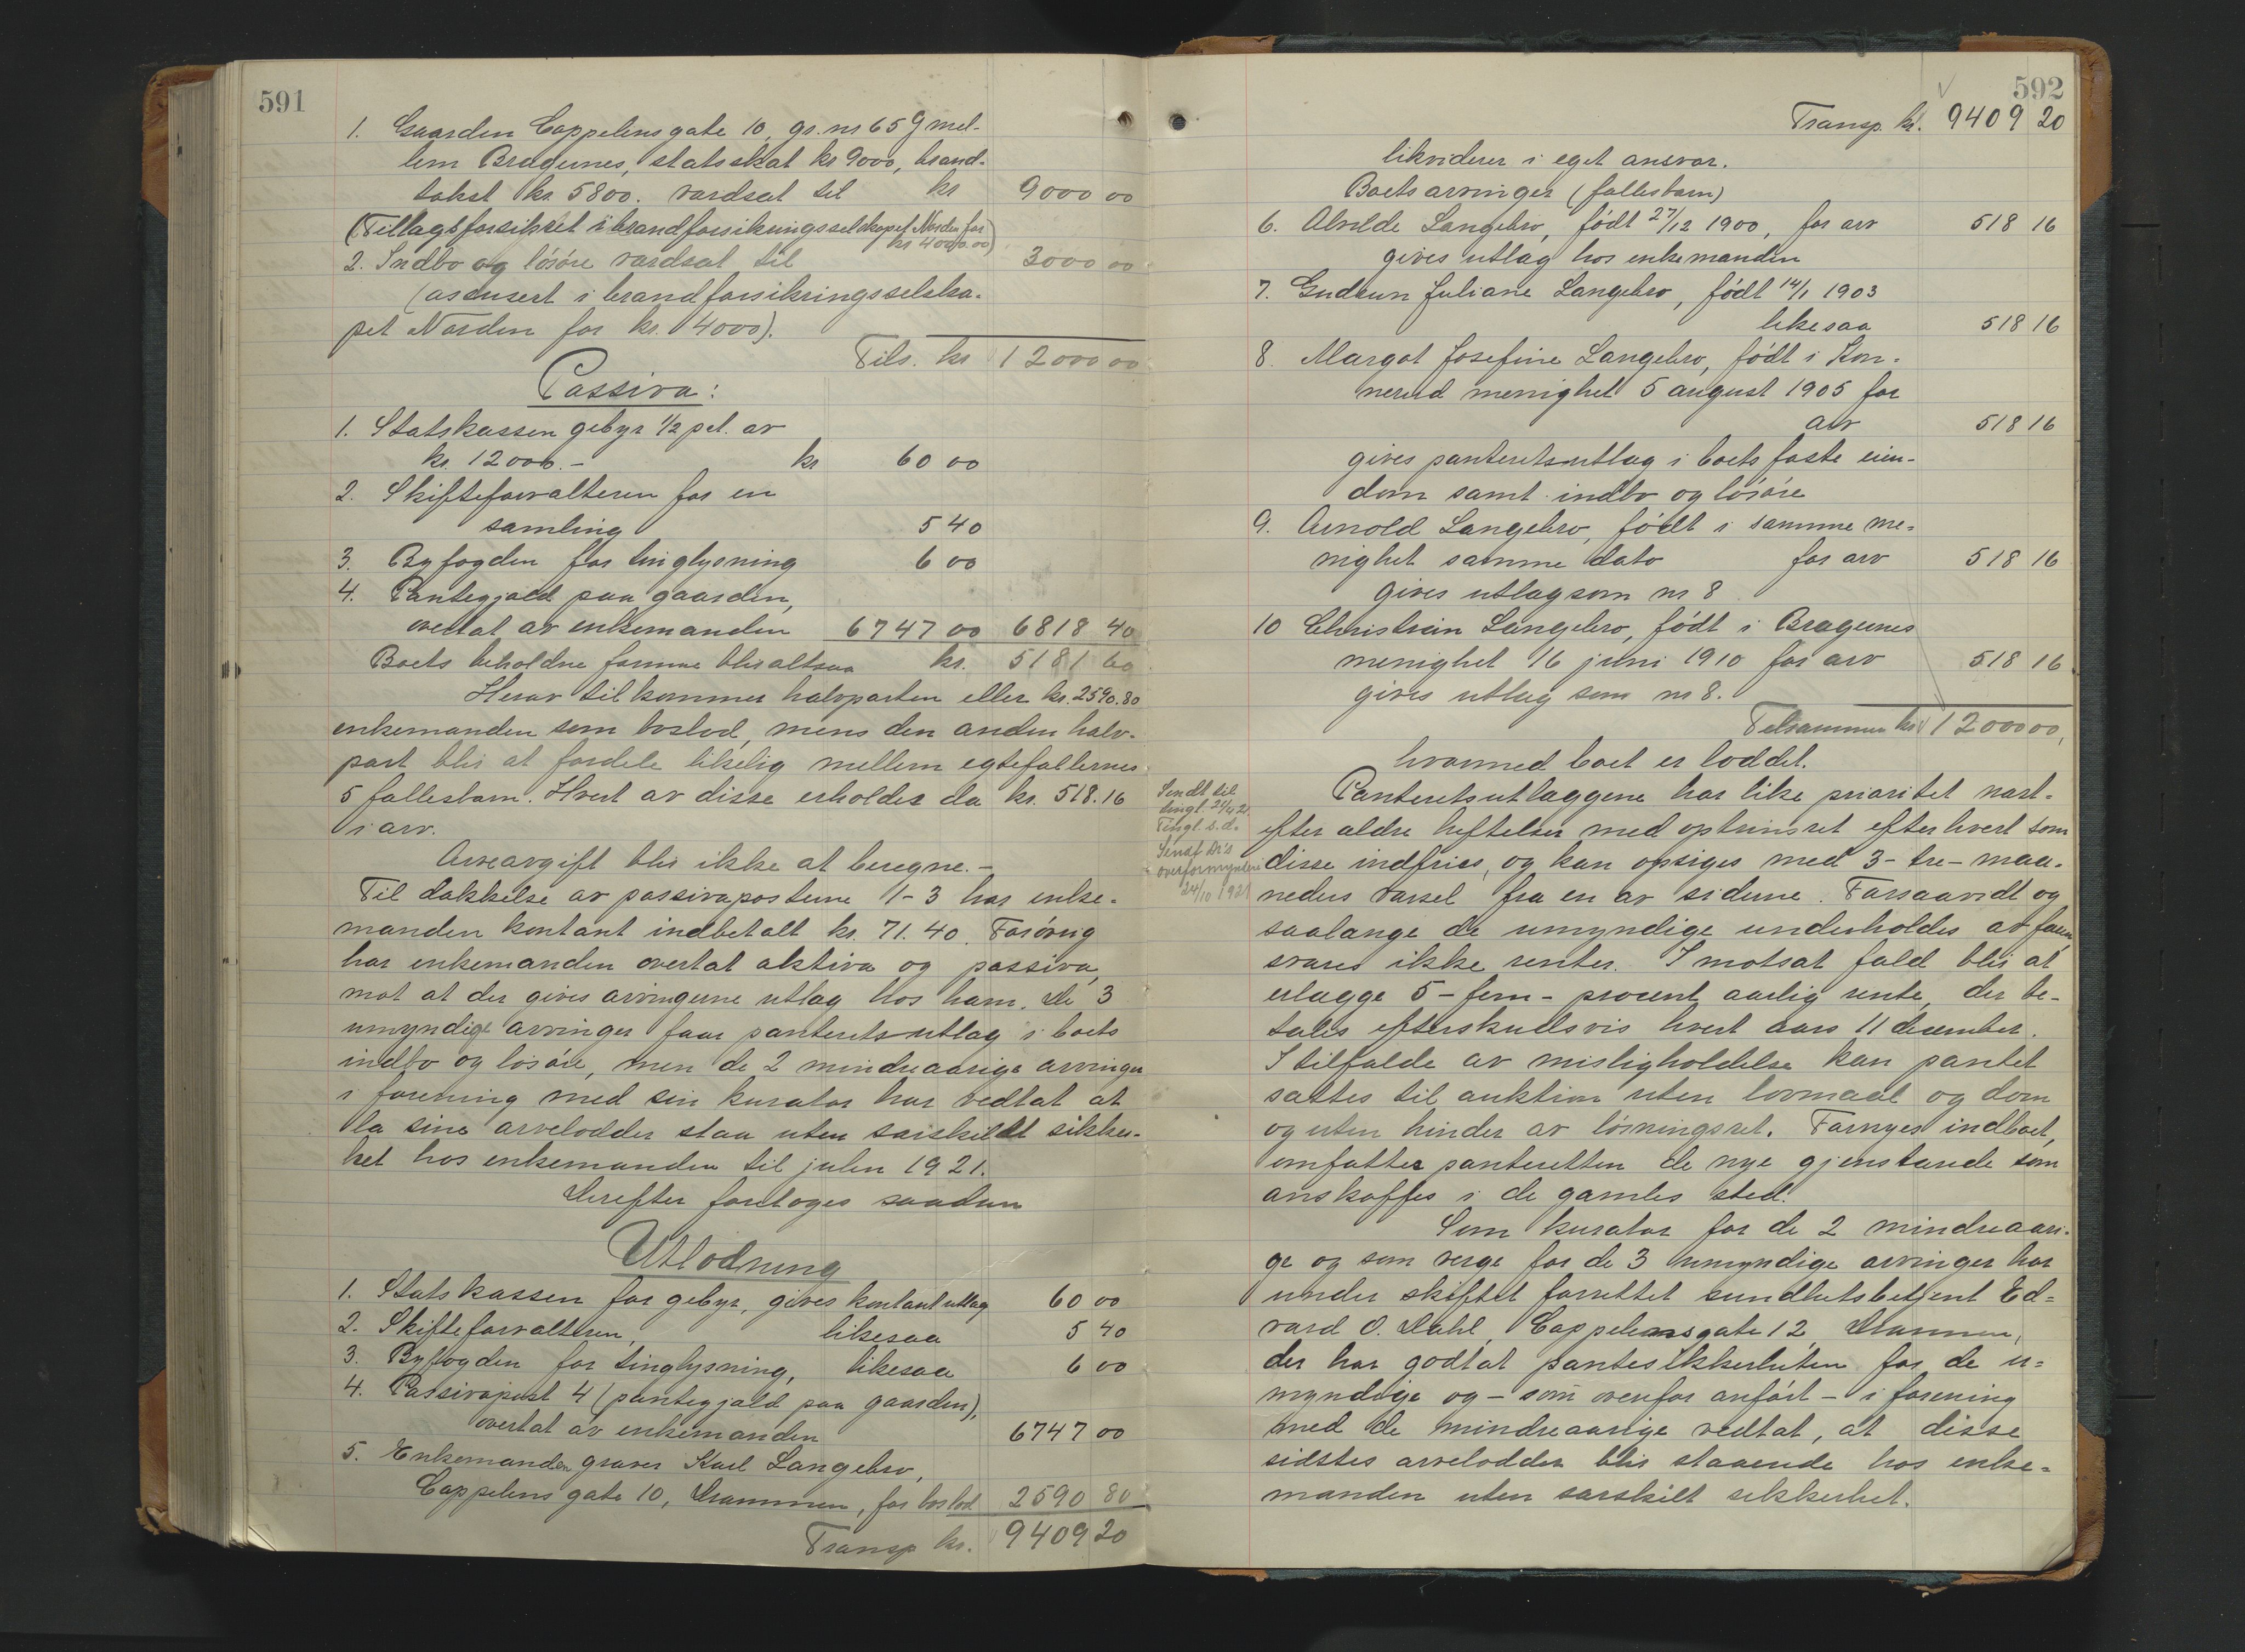 591
1. Gaarden Cappelensgate 10, gr. nr 659 mel-
lem Bragernes, statsskat kr 9000, brand-
takst kr. 5800. værdsat til kr 9000 00
(Tillægsforsikret i brandforsikringsselskapet Norden for
kr 4000.00)
2. Indbo og løsøre værdsat til 3000 00
(assurert i brandforsikringsselska-
pet Norden for kr. 4000).
Tils. kr 12000 00
Passiva:
1. Statskassen gebyr 1/2 pct. av
kr. 12000.- kr 60 00
2. Skifteforvalteren for en
samling 5 40
3. Byfogden for tinglysning 6 00
4. Pantegjæld paa gaarden,
overtat av enkemanden 6747 00 6818 40
Boets beholdne formue blir altsaa kr. 5181 60
Herav tilkommer halvparten eller kr. 2590.80
enkemanden som boslod, mens den anden halv-
part blir at fordele likelig mellem egtefællernes
5 fællesbarn. Hvert av disse erholder da kr. 518.16
i arv.
Arveavgift blir ikke at beregne.-
Til dækkelse av passivaposterne 1-3 har enke-
manden kontant indbetalt kr. 71.40. Forøvrig
har enkemanden overtat aktiva og passiva,
mot at der gives arvingerne utlæg hos ham. De 3
umyndige arvinger faar panteretsutlæg i boets
indbo og løsøre, men de 2 mindreaarige arvinger
i forening med sin kurator har vedtat at
la sine arvelodder staa uten særskildt sikker-
het hos enkemanden til julen 1921.
Derefter foretoges saadan
Utlodning
1. Statskassen for gebyr, gives kontant utlæg 60 00
2. Skifteforvalteren, likesaa 5 40
3. Byfogden for tinglysning, likesaa 6 00
4. Passivapost 4 (pantegjæld paa gaarden),
overtat av enkemanden 6747 00
5. Enkemanden graver Karl Langebro,
Cappelens gate 10, Drammen, for boslod 2590 80
Transp kr. 9409 20
592
Transp. kr. 9409 20
likviderer i eget ansvar.
Boets arvinger (fællesbarn)
6. Alvilde Langebro, født 27/12 1900, for arv 518 16
gives utlæg hos enkemanden
7. Gudrun Juliane Langebro, født 14/1 1903
likesaa 518 16
8 Margot Josefine Langebro, født i Kon-
nerud menighet 5 august 1905 for
arv 518 16
gives panteretsutlæg i boets faste eien-
dom samt indbo og løsøre
9. Arnold Langebro, født i samme me-
nighet samme dato for arv 518 16
gives utlæg som nr 8
10 Christian Langebro, født i Bragernes
menighet 16 juni 1910 for arv 518 16
gives utlæg som nr 8.
Tilsammen kr 12000 00,
hvormed boet er loddet.
Sendt til
tingl. 21/4 21.
Tingl. s.d.
overformynderi
24/10 1921
Panteretsutlæggene har like prioritet næst-
efter ældre heftelser med optrinsret efterhvert som
disse indfries, og kan opsiges med 3- tre- maa-
neders varsel fra en av siderne. Forsaavidt og
saalange de umyndige underholdes av faren
svares ikke renter. I motsat fald blir at
erlægge 5- fem- procent aarlig rente, der be-
tales efterskudsvis hvert aars 11 december.
I tilfælde av misligholdelse kan pantet
sættes til auktion uten lovmaal og dom
og uten hinder av løsningsret. Fornyes indboet,
omfatter panteretten de nye gjenstande som
anskaffes i de gamles sted.
Som kurator for de 2 mindreaari-
ge og som verge for de 3 umyndige arvinger har
under skiftet forrettet sundhetsbetjent Ed-
vard O. Dahl, Cappelensgate 12, Drammen,
der har godtat pantesikkerheten for de u-
myndige og - som ovenfor anført - i forening
med de mindreaarige vedtat, at disse
sidstes arvelodder blir staaende hos enke-
manden uten særskilt sikkerhet.